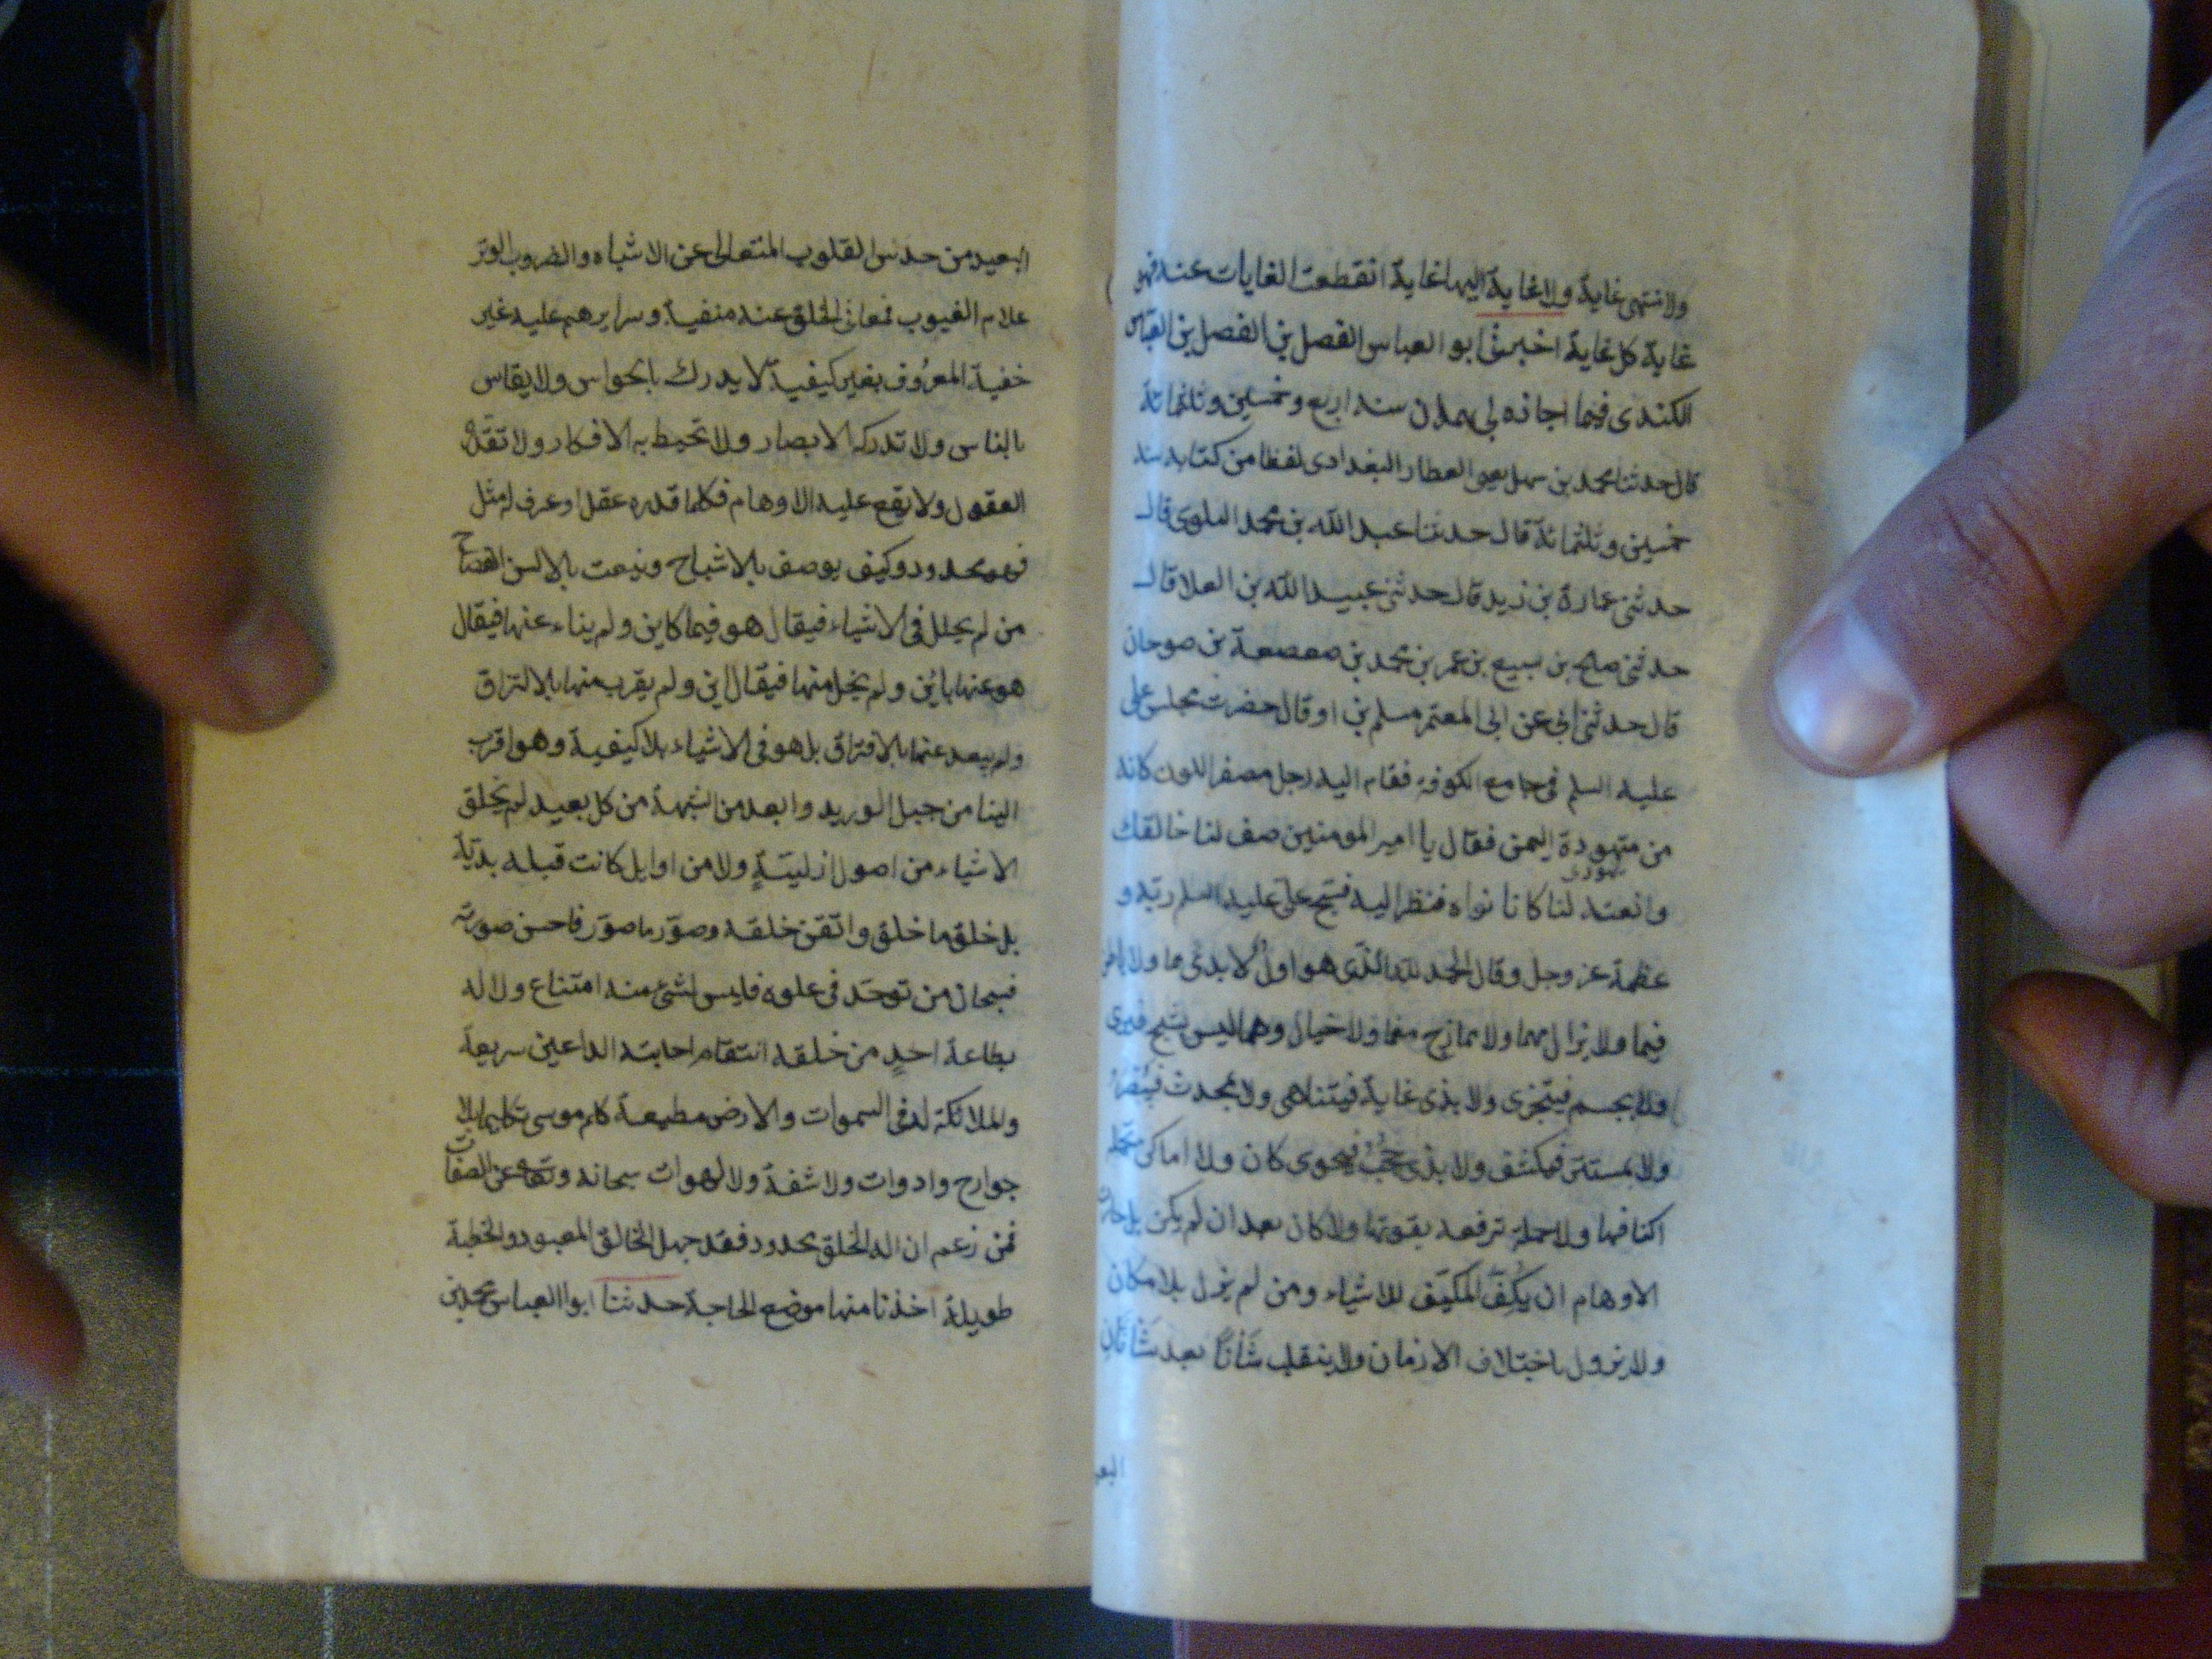 ولا منتهى غاية ولا غاية اليها غاية انقطعت الغايات عنده فهو
غاية كل غاية اخبرني ابو العباس الفضل بن الفضل بن العباس
الكندى فيما اجازه لي بهمدان سنه اربع وخمسين وثلثمائة
قال حدثنا محمد بن سهل يعنى العطار البغدادى لفظا من كتابه سنه
خمسين وثلثمائة قال حدثنا عبد الله بن محمد البلوى قال
حدثنى عمارة بن زيد قال حدثنى عبيد الله بن العلا قال
حدثنى صالح بن سبيع بن عمر بن محمد بن صعصعة بن صوحان
قال حدثنى ابى عن ابى المعتمر مسلم بن اوقال حضرت مجلس على
عليه السلم فى جامع الكوفه فقام اليه رجل مصفر اللون كانه
من متهودة اليمن فقال يا امير المومنين صف لنا خالقك
وانعته لنا كانا نراه فنظر اليه فسبح على عليه السلم ربه و
عظمه عز وجل وقال الحمد لله الذى هو اول لا بدئ مما ولا باطن
فيما ولا يزال مهما ولا ممازج معما ولا خيال وهما ليس بشبح فيرى
ولا بجسم فيتجزى ولا بذى غاية فيتناهى ولا بمحدث فيبصر
ولا بمستتر فيكشف ولا بذى حجب فيحوى كان ولا اماكن تحمله
اكنافها ولا حملة ترفعه بقوتها ولا كان بعد ان لم يكن بل حارت
الاوهام ان يكيف المكيف للاشياء ومن لم يزل بلا مكان
ولا يزول باختلاف الازمان ولا ينقلب شأنا بعد شأن
البعيد
البعيد من حدس القلوب المتعالى عن الاشباه والضروب الوتر
علام الغيوب فمعانى الخلق عنه منفية وسرايرهم عليه غير
خفية المعروف بغير كيفية لا يدرك بالحواس ولا يقاس
بالناس ولا تدركه الابصار ولا تحيط به الافكار ولا تقدره
العقول ولا يقع عليه الاوهام فكلما قدره عقل او عرف له مثل
فهو محدود وكيف يوصف بالاشباح وينعت بالالسن الفصاح
من لم يحلل فى الاشياء فيقال هو فيها كاين ولم يناء عنها فيقال
هو عنها باين ولم يخل منها فيقال اين ولم يقرب منها بالالتزاق
ولم يبعد عنها بالافتراق بل هو فى الاشياء بلا كيفية وهو اقرب
الينا من حبل الوريد وابعد من الشبهة من كل بعيد لم يخلق
الاشياء من اصول ازلية ولا من اوايل كانت قبله بدية
بل خلق ما خلق واتقن خلقه وصوّر ما صوّر فاحسن صورته
فسبحان من توحّد فى علوه فليس لشئ منه امتناع ولا له
بطاعة احدٍ من خلقه انتفاع اجابته الداعين سريعة
والملائكة له فى السموات والارض مطيعة كلم موسى تكليما بلا
جوارح وادوات ولا شفة ولا لهوات سبحانه وتعالى عن الصفات
فمن زعم ان اله الخلق محدود فقد جهل الخالق المعبود والخطبة
طويلة اخذنا منها موضع الحاجة حدثنا ابوا العباس محمد بن